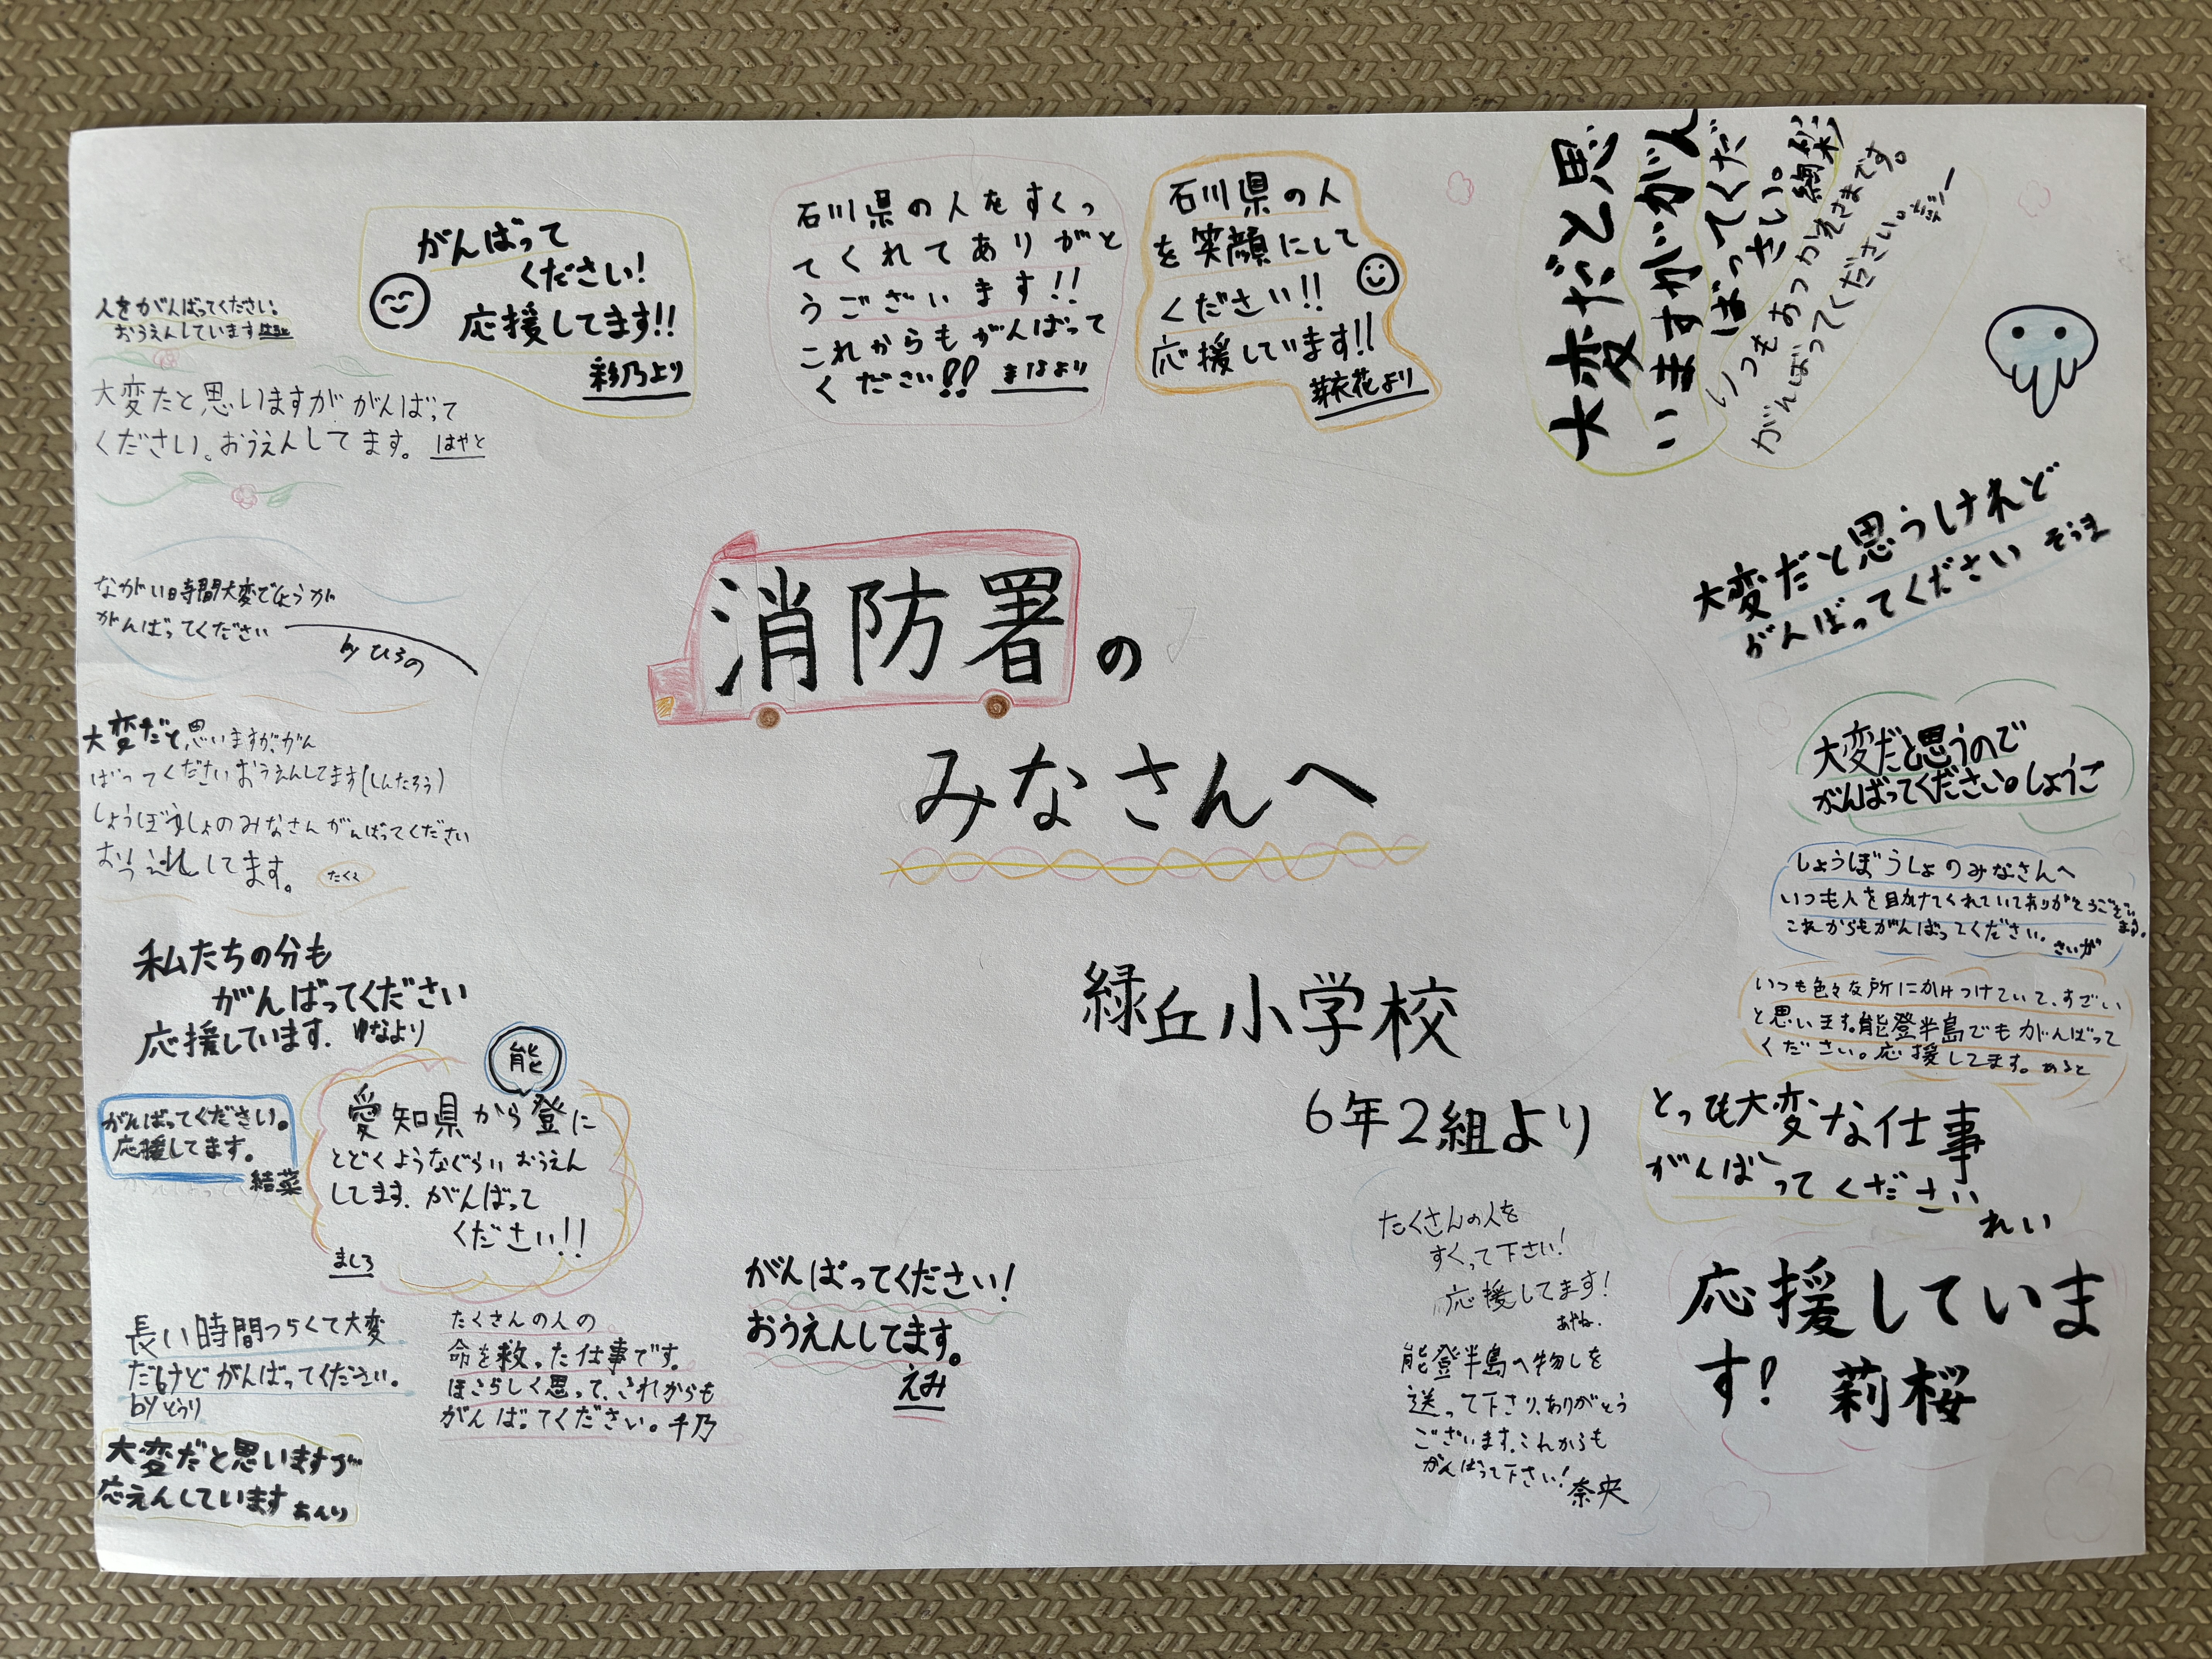 消防署の
みなさんへ
緑丘小学校
6年2組より
人をがんばってください。
おうえんしています
大変だと思いますががんばって
ください。おうえんしてます。はやと
がんばって
ください!
応援してます!!
彩乃より
石川県の人をすくっ
てくれてありがと
うございます!!
これからもがんばって
ください!! まなより
石川県の人
を笑顔にして
ください!!
応援しています!!
芽衣花より
大変だと思
いますががん
ばってくだ
さい。
いつもおつかえさまです。
がんばってください。
大変だと思うけれど
がんばってください そうま
大変だと思うので
がんばってください。しょうご
しょうぼうしょのみなさんへ
いつも人を助けてくれていてありがとうござい
ます。
これからもがんばってください。さいが
いつも色々な所にかけつけていて、すごい
と思います。能登半島でもがんばって
ください。応援してます。めると
とっても大変な仕事
がんばってください
れい
応援していま
す! 莉桜
ながい時間大変でしょうが
がんばってください
by ひろの
大変だと思いますが、がん
ばってくださいおうえんしてます(しんたろう)
しょうぼうしょのみなさんがんばってください
おうえんしてます。
たくえ
私たちの分も
がんばってください
応援しています. ゆなより
がんばってください。
応援してます。
結菜
能
愛知県から登に
とどくようなぐらいおうえん
してます. がんばって
ください!!
ましろ
長い時間つらくて大変
だけどがんばってください。
by とうり
大変だと思いますが
応えんしています あんり
たくさんの人の
命を救った仕事です。
ほこらしく思って、これからも
がんばってください。千乃
がんばってください!
おうえんしてます。
えみ
たくさんの人を
すくって下さい!
応援してます!
あやね.
能登半島へ物しを
送って下さり、ありがとう
ございます。これからも
がんばって下さい! 奈央